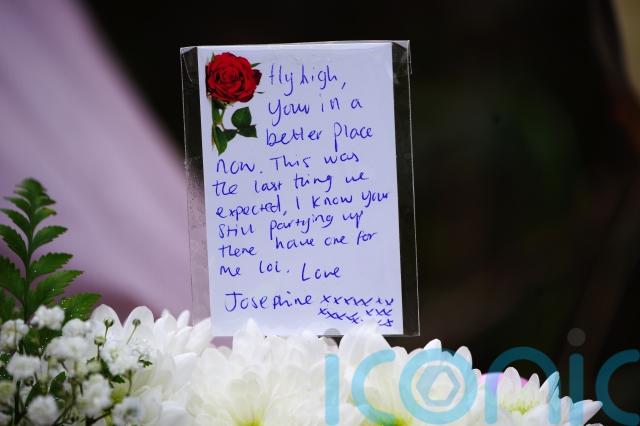 fly high,
your in a
better place
now. This was
the last thing we
expected, I know your
still partying up
there have one for
me lol. Love
Josephine xxxxxxx
xxxx xxx
iconic